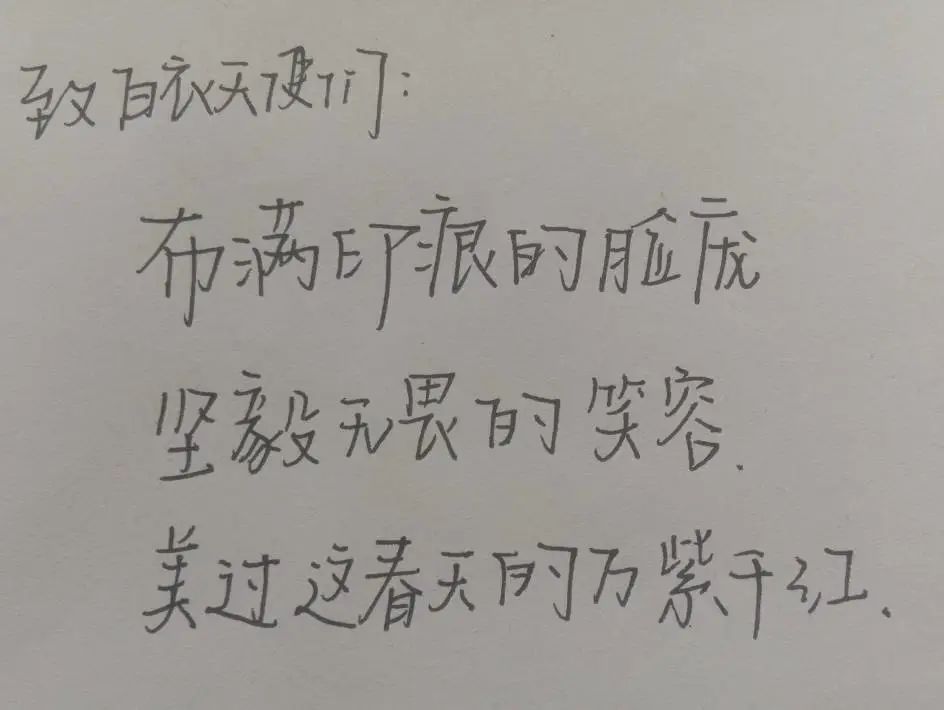 致白衣天使们:
布满印痕的脸庞
坚毅无畏的笑容.
美过这春天的万紫千红.